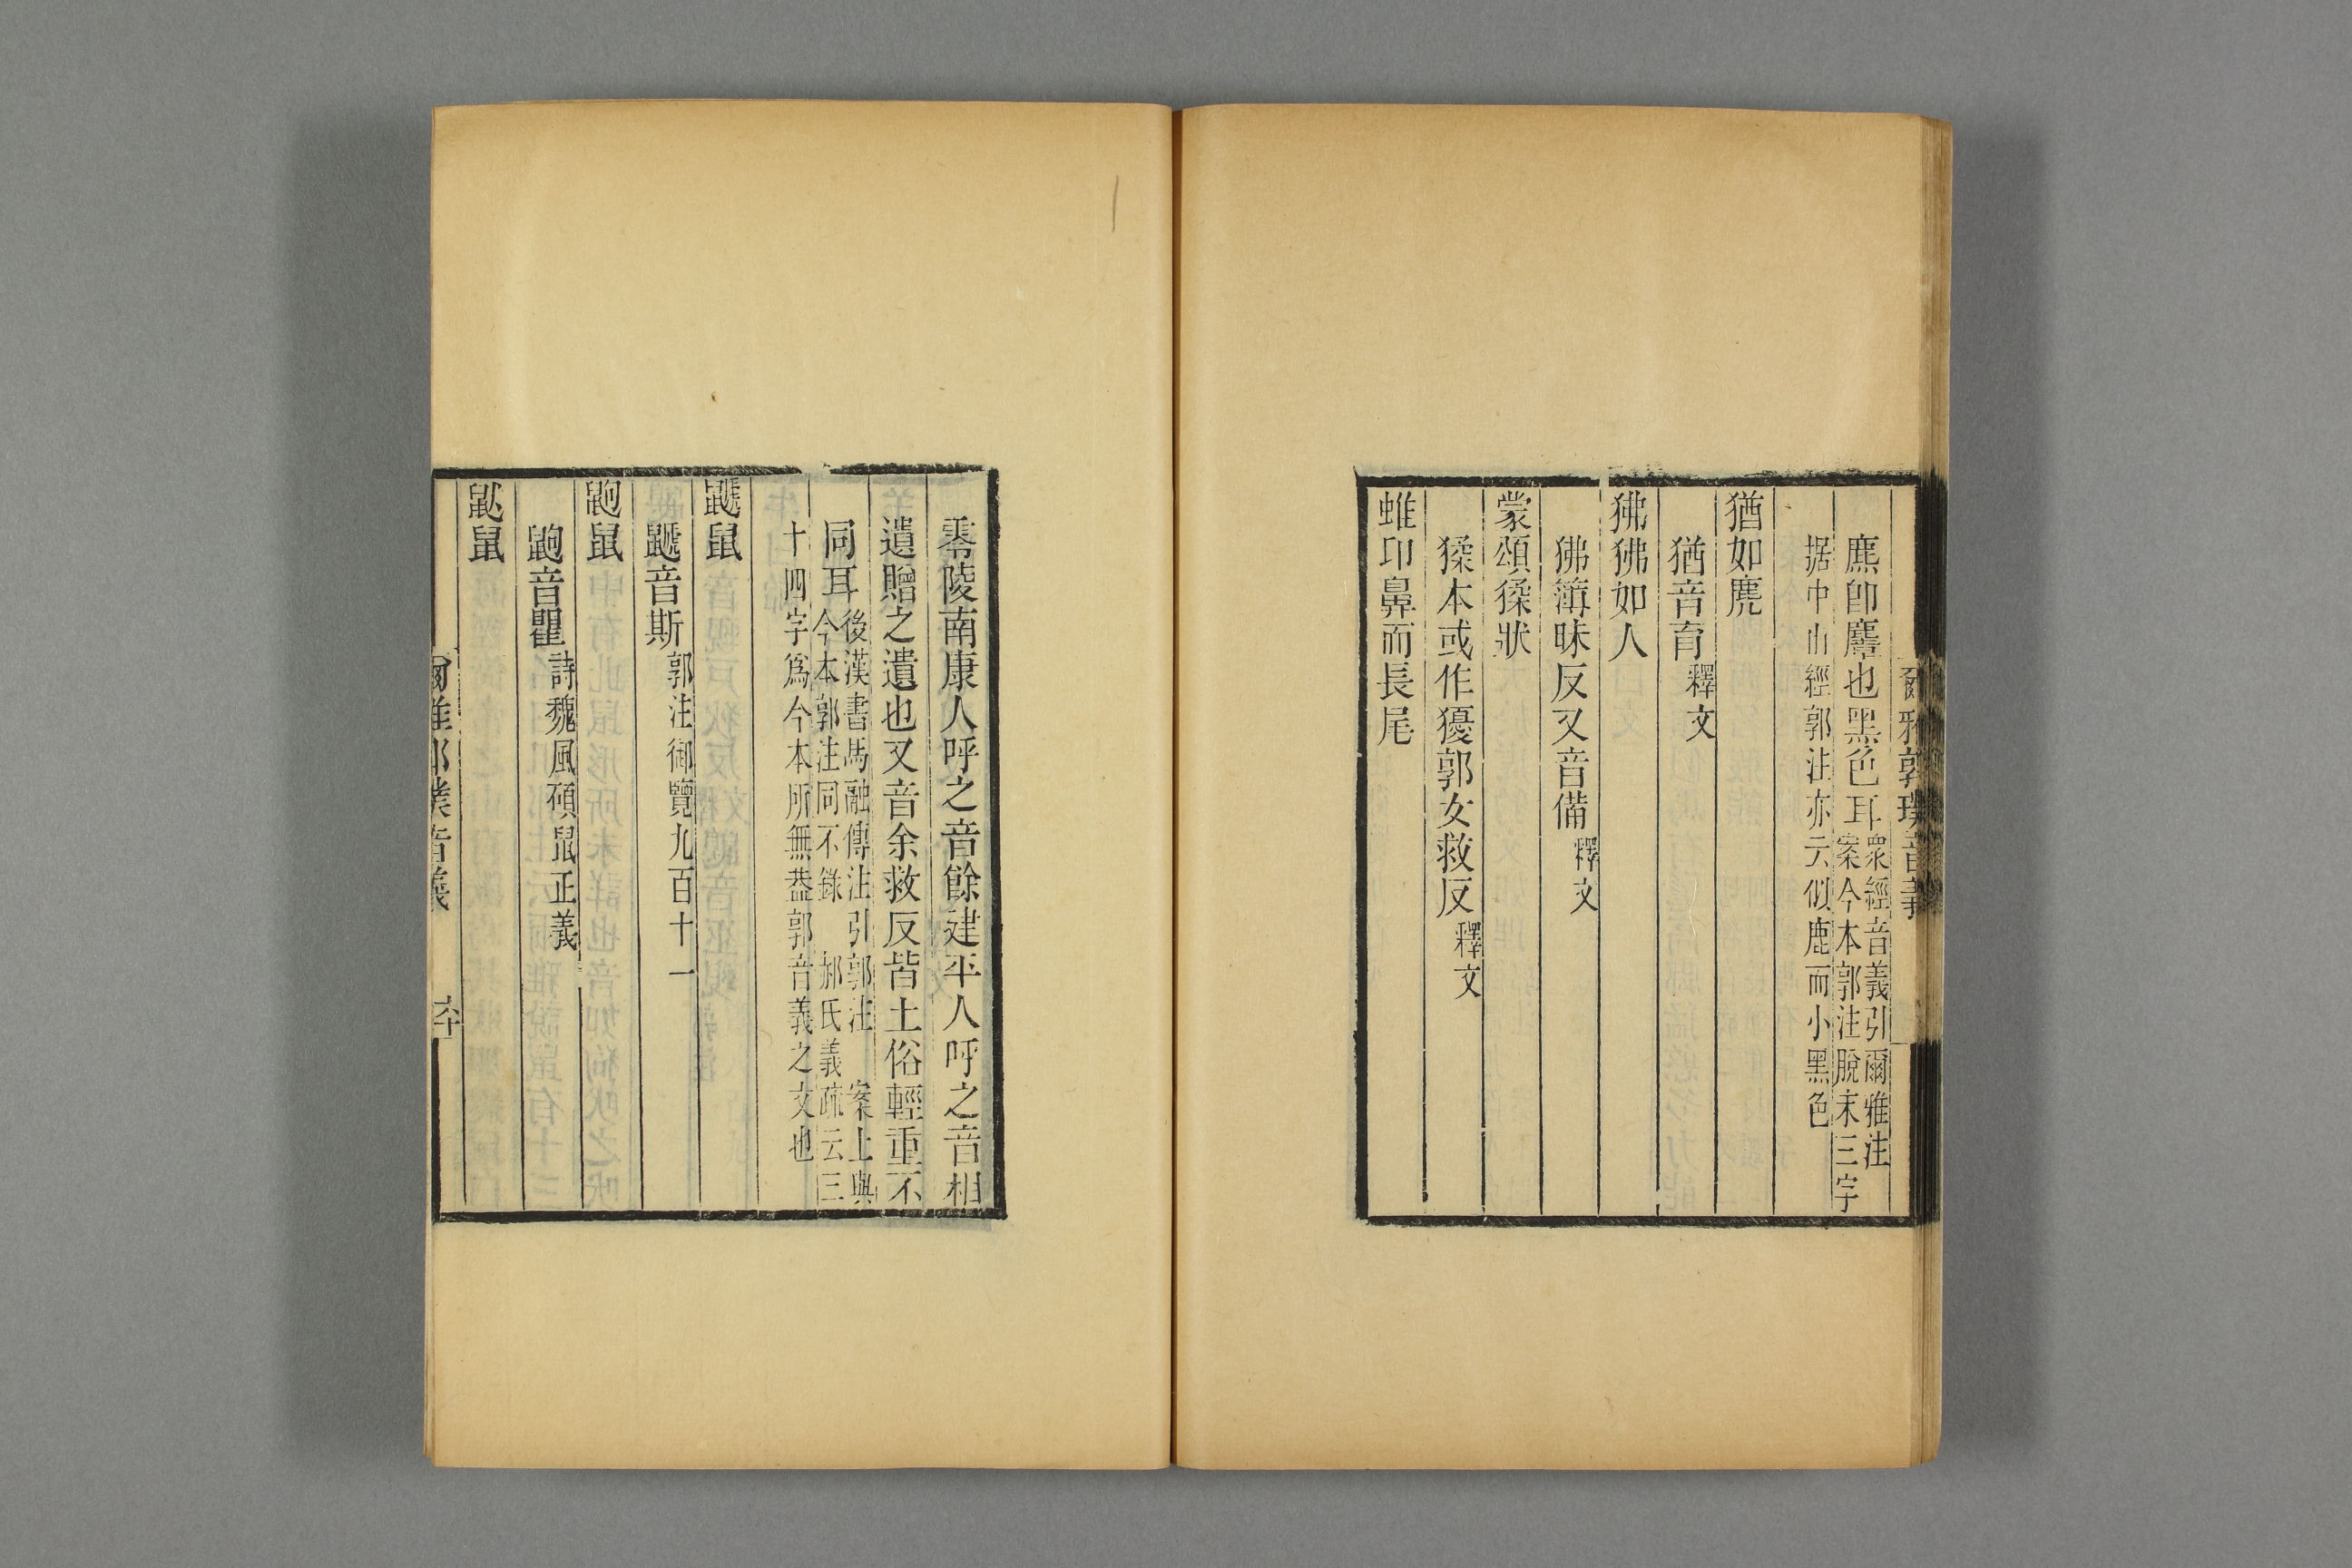 爾雅郭璞音義
麃卽麠也黑色耳衆經音義引爾雅注
案今本郭注脫末三字
据中山經郭注亦云似鹿而小黑色
猶如麂
猶音育釋文
狒狒如人
狒簿昧反又音備釋文
蒙頌猱狀
猱本或作獶郭女救反釋文
蜼卬鼻而長尾
零陵南康人呼之音餘建平人呼之音相
遺贈之遺也又音余救反皆土俗輕重不
同耳後漢書馬融傳注引郭注 案上與
今本郭注同不錄 郝氏義疏云三
十四字爲今本所無葢郭音義之文也
鼶鼠
鼶音斯郭注御覽九百十一
鼩鼠
鼩音瞿詩魏風碩鼠正義
鼣鼠
爾雅郭璞音義